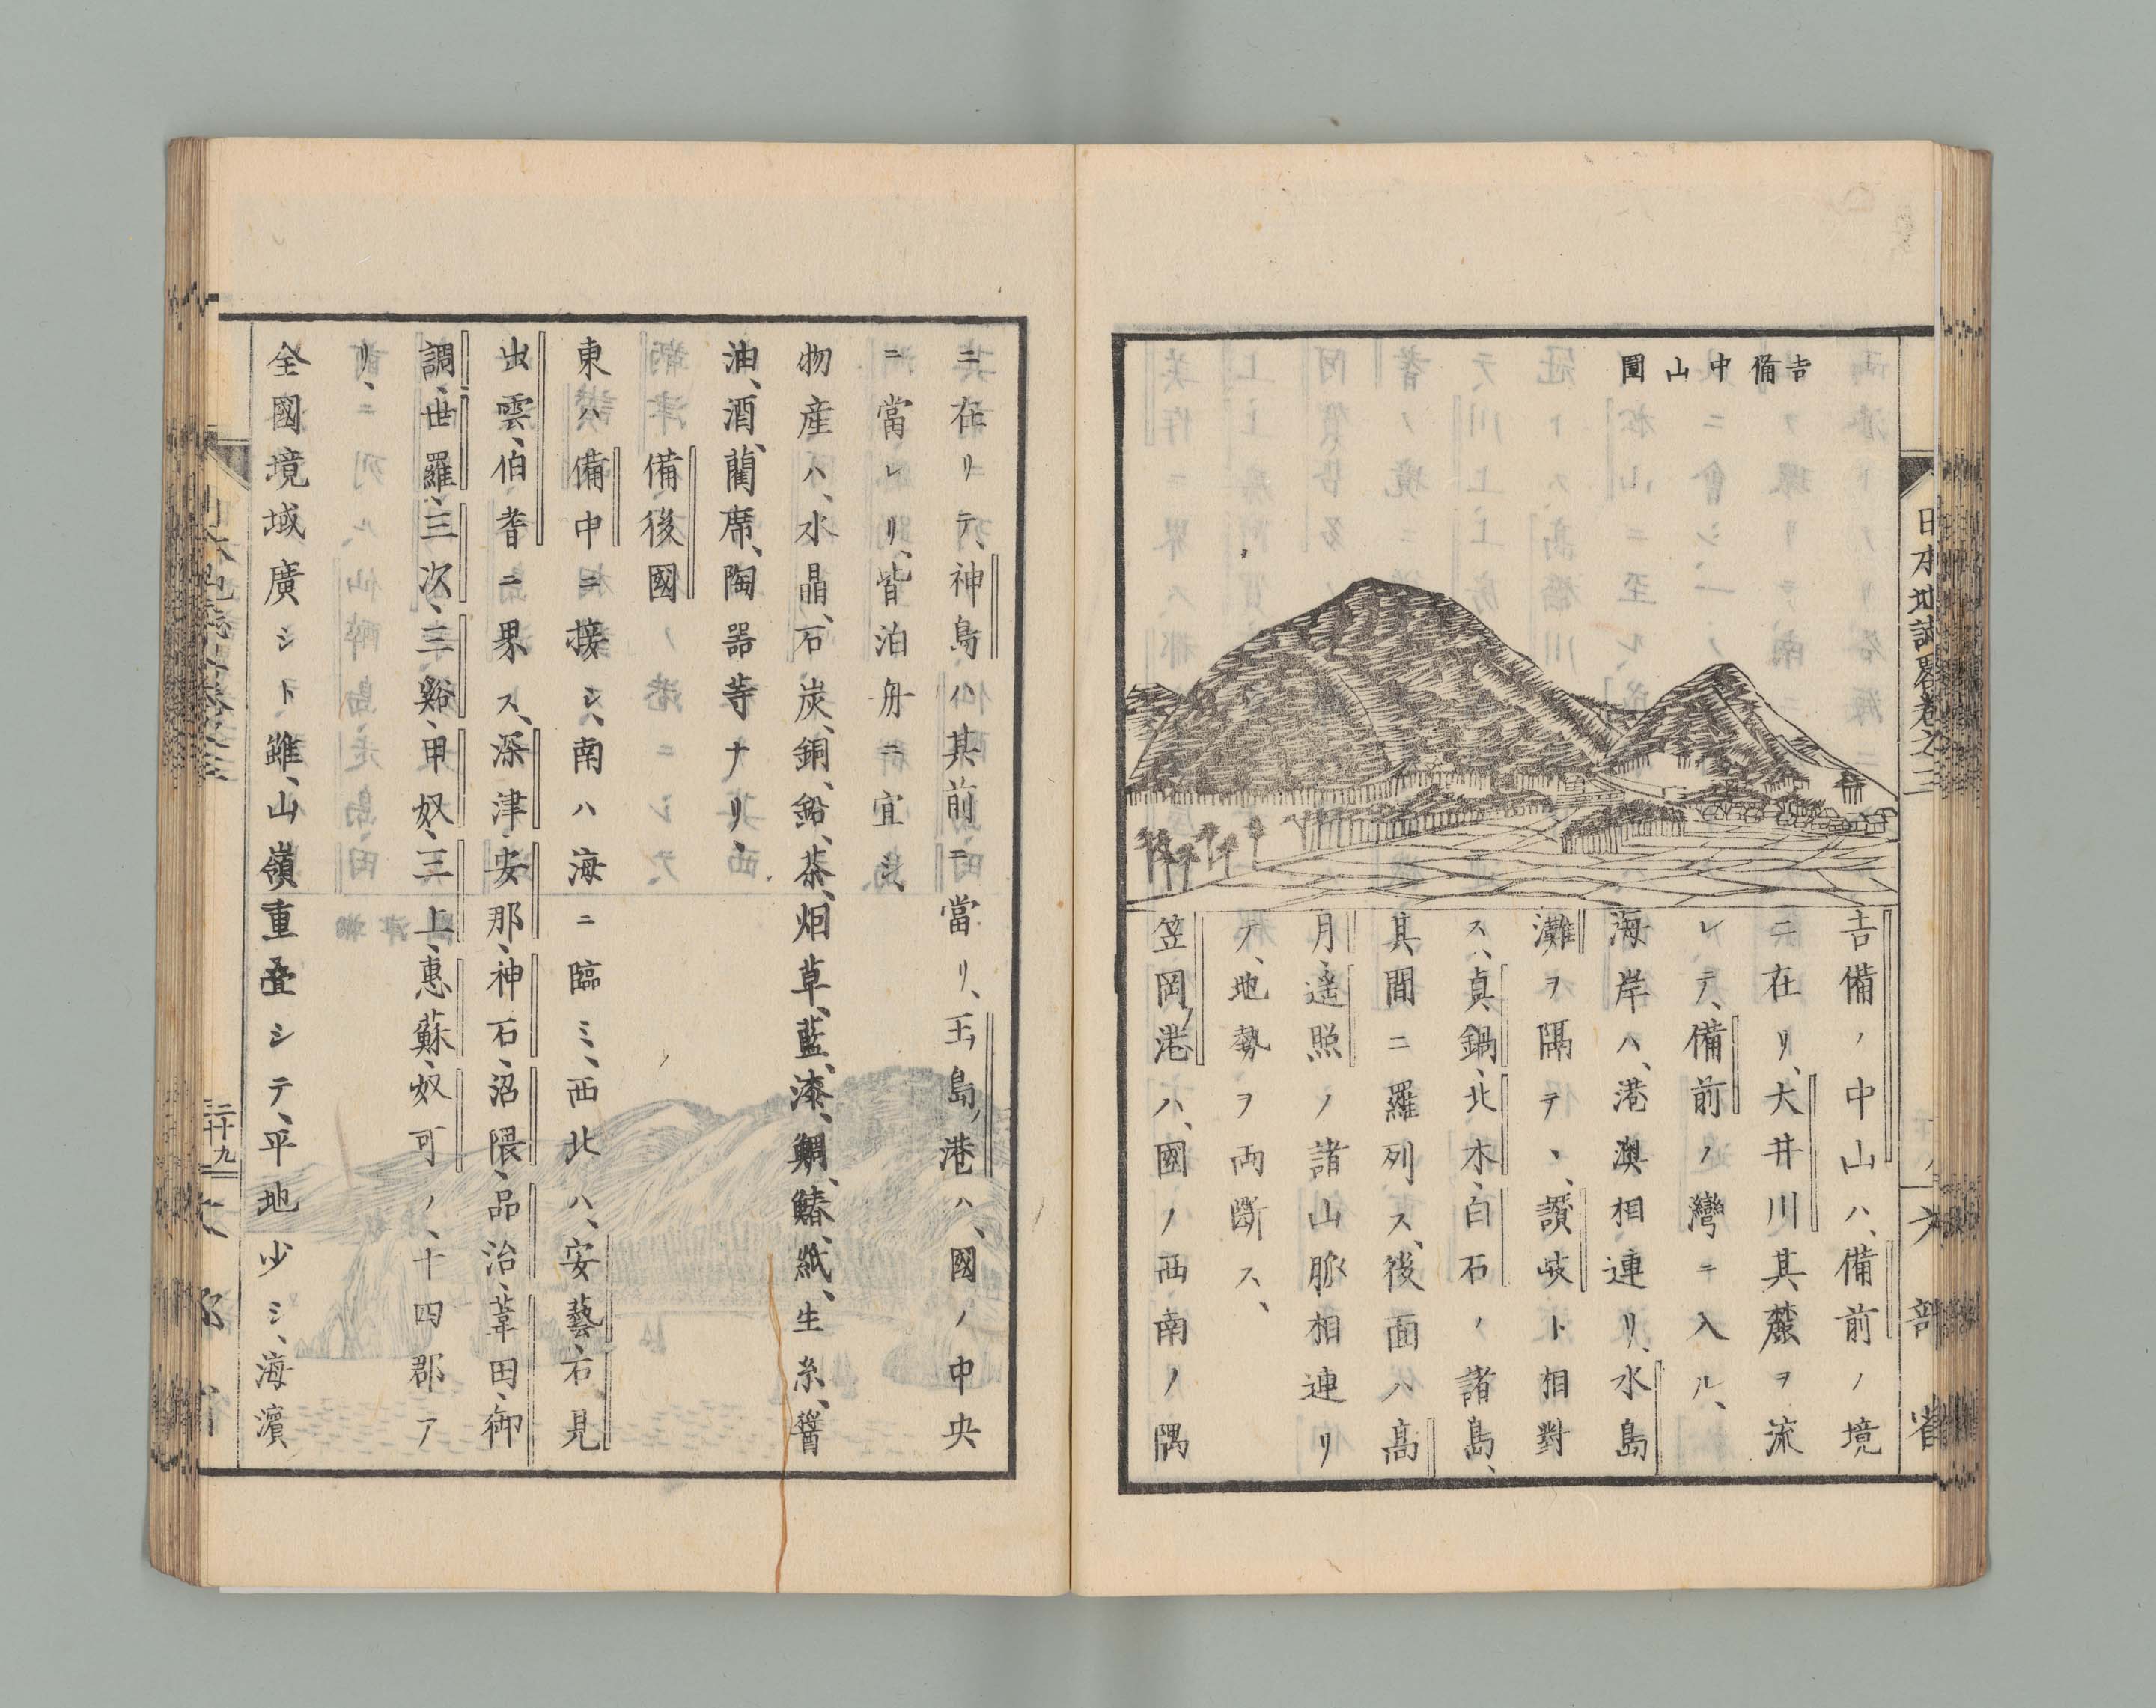 日本地誌畧巻之三
文部省
吉備中山圖
吉備ノ中山ハ、備前ノ境
ニ在リ、大井川其麓ヲ流
レテ、備前ノ灣ニ入ル、
海岸ハ、港澳相連リ、水島
灘ヲ隔テヽ、讃岐ト相對
ス、眞鍋、北木、白石ノ諸島、
其間ニ羅列ス、後面ハ高
月、遥照ノ諸山脈相連リ
テ、地勢ヲ両斷ス、
笠岡ノ港ハ、國ノ西南ノ隅
ニ在リテ、神島ハ其前ニ當リ、玉島ノ港ハ、國ノ中央
ニ當レリ、皆泊舟ニ宜シ、
物産ハ、水晶、石炭、銅、鉛、茶、烟草、藍、漆、鯛、鰆、紙、生糸、醤
油、酒、藺席、陶器等ナリ、
備後國
東ハ備中ニ相接シ、南ハ海ニ臨ミ、西北ハ、安藝、石見
出雲、伯耆ニ界ス、深津、安那、神石、沼隈、品治、葦田、御
調、世羅、三次、三谿、甲奴、三上、惠蘇、奴可ノ、十四郡ア
リ、
全國境域廣シト雖、山嶺重疊シテ、平地少シ、海濱
二十九